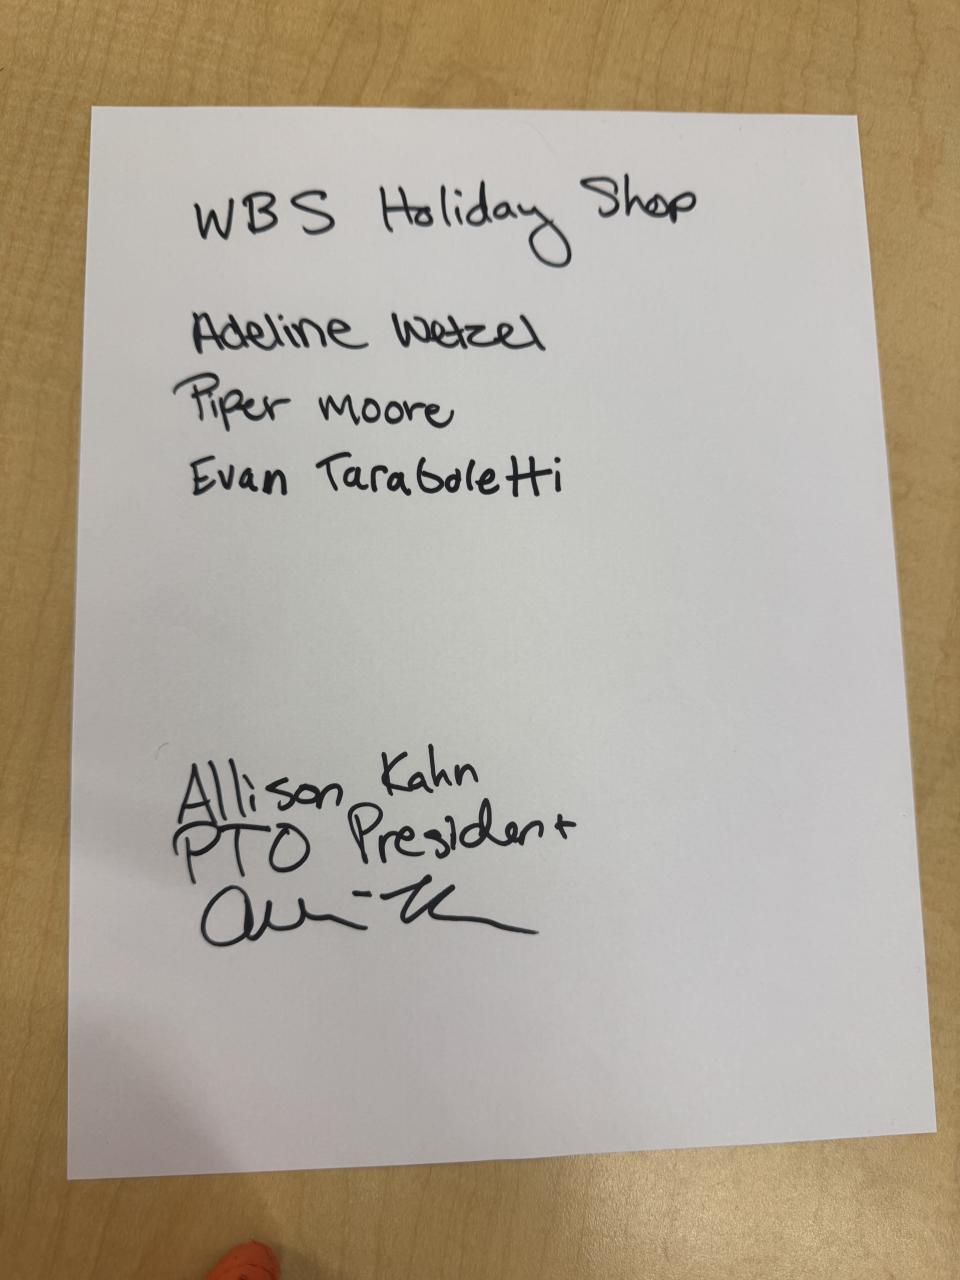 WBS Holiday Shop
Adeline Wetzel
Piper Moore
Evan Taraboletti
Allison Kahn
PTO President